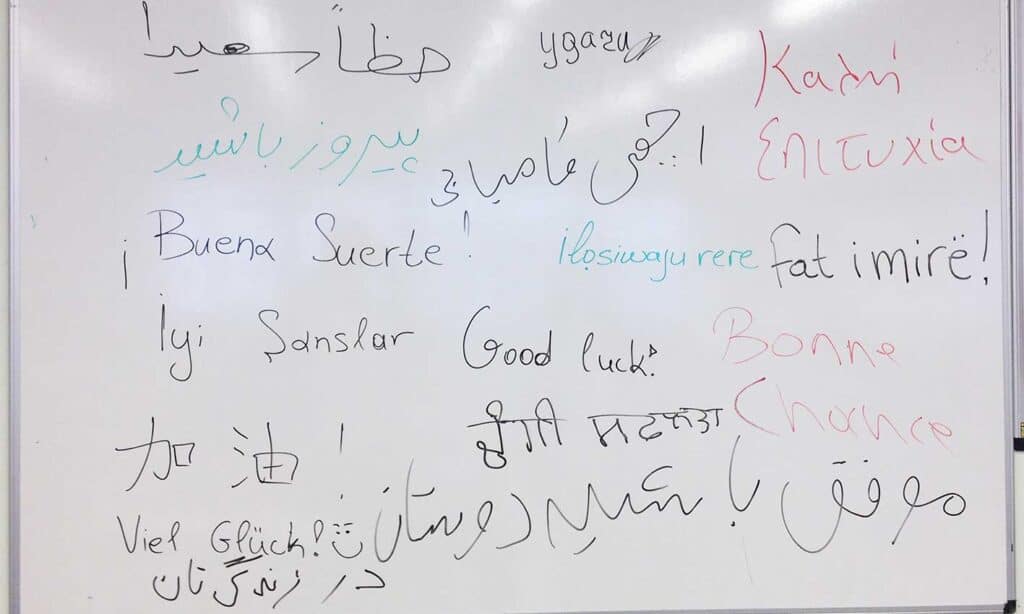 حظاً سعيدا
Καλή
پیروز باشید
Επιτυχία
¡Buena Suerte!
Ilọsiwaju rere
fat i mirë!
İyi Şanslar
Good luck!
Bonne
Chance
加油!
موفق باشید دوستان
Viel Glück!
در زندگی تان